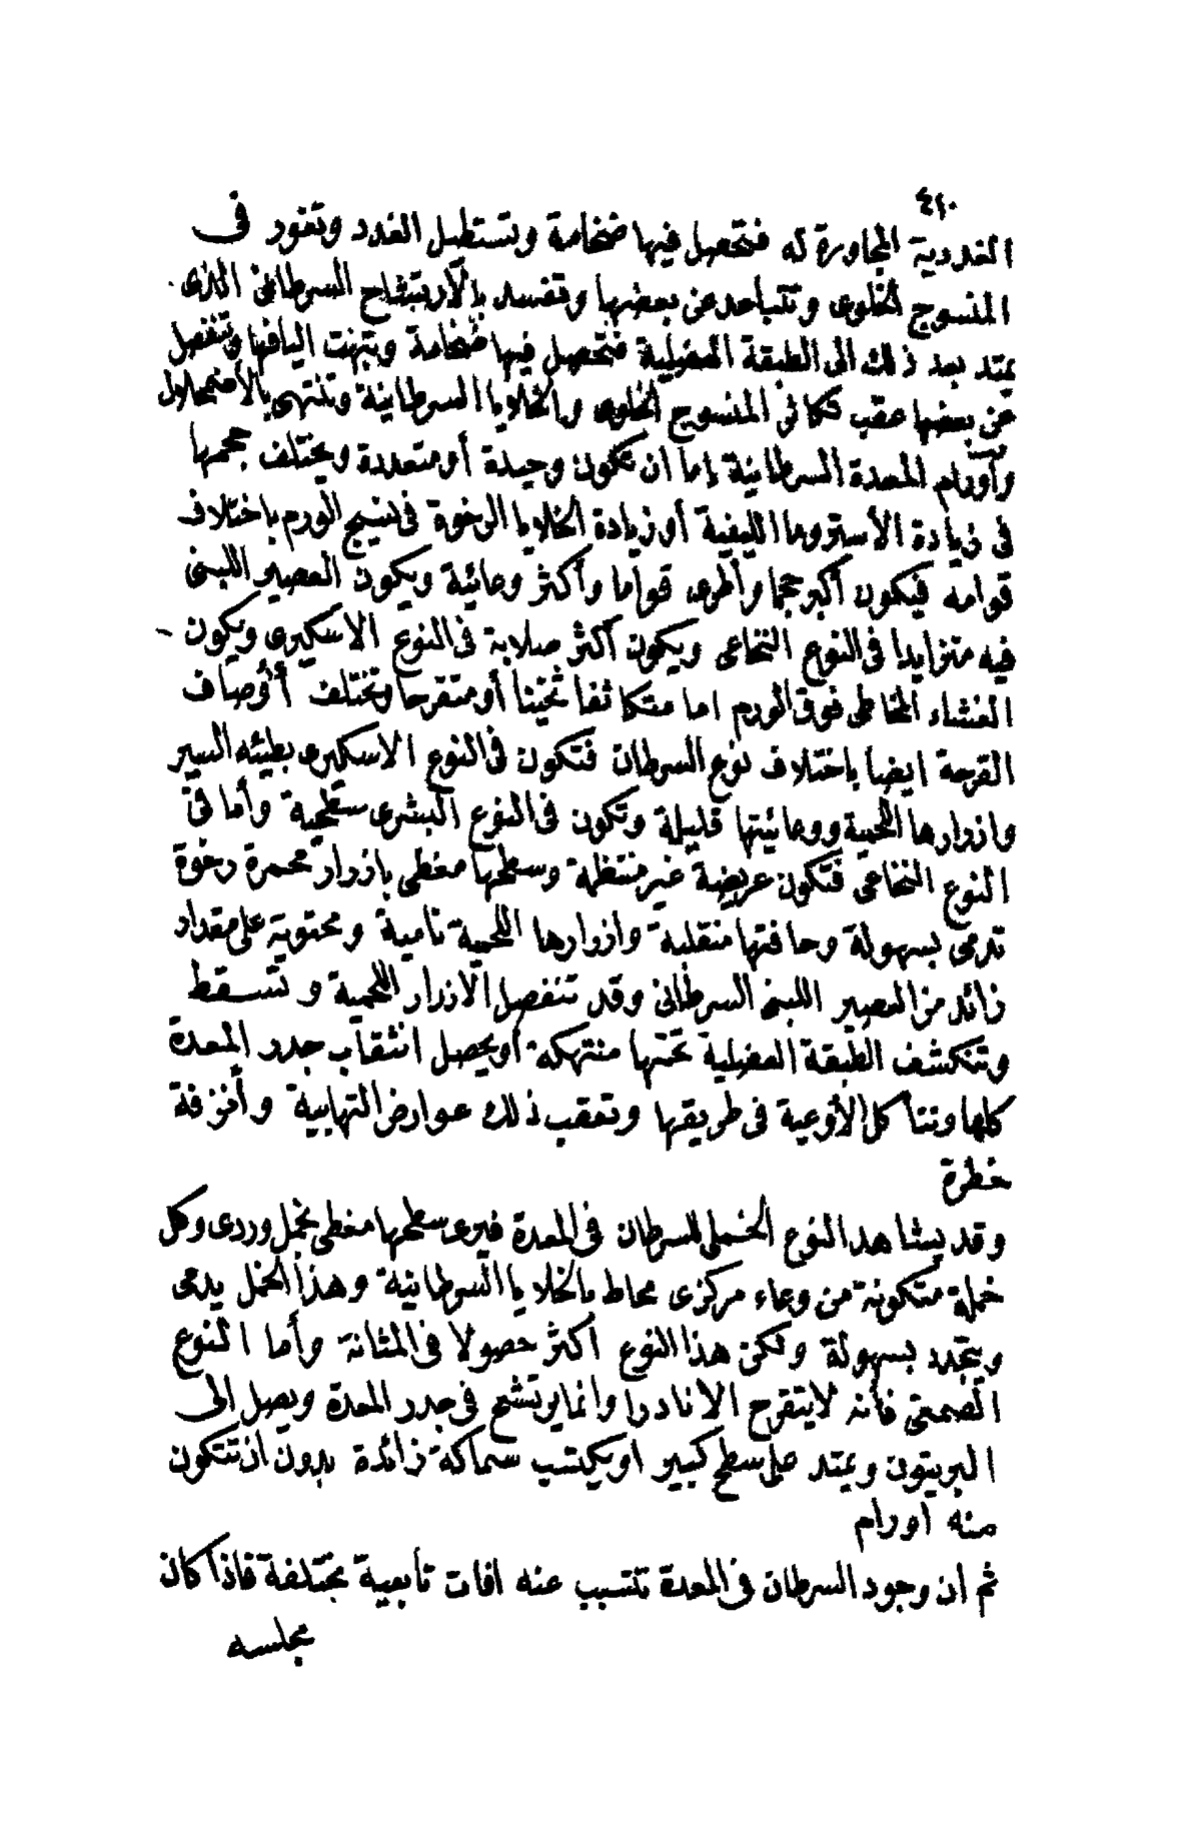 ٤١٠
الغددية المجاورة له فتحصل فيها ضخامة وتستطيل الغدد وتغور فى
المنسوج الخلوى وتتباعد عن بعضها وتفسد بالارتشاح السرطانى الذى
يمتد بعد ذلك الى الطبقة العضلية فتحصل فيها ضخامة وتبهت اليافها وتنفصل
عن بعضها عقب تكاثف المنسوج الخلوى والخلايا السرطانية وتنتهى بالاضمحلال
وأورام المعدة السرطانية إما ان تكون وحيدة أو متعددة ويختلف حجمها
فى زيادة الأستروما الليفية أو زيادة الخلايا الرخوة فى نسيج الورم باختلاف
قوامه فيكون أكبر حجما وأطرى قواما وأكثر وعائية ويكون العصير اللبنى
فيه متزايدا فى النوع النخاعى ويكون أكثر صلابة فى النوع الاسكيرى ويكون
الغشاء المخاطى فوق الورم اما متكاثفا ثخينا أو متقرحا وتختلف أوصاف
القرحة ايضا باختلاف نوع السرطان فتكون فى النوع الاسكيرى بطيئه السير
وازرارها اللحمية ووعائيتها قليلة وتكون فى النوع البشرى سطحية وأما فى
النوع النخاعى فتكون عريضة غير منتظمة وسطحها مغطى بازرار محمرة رخوة
تدمى بسهولة وحافتها منقلبة وازرارها اللحمية نامية ومحتوية على مقدار
زائد من العصير اللبنى السرطانى وقد تنفصل الازرار اللحمية وتسقط
وتنكشف الطبقة العضلية تحتها منتهكة أو يحصل انثقاب جدر المعدة
كلها وتتأكل الأوعية فى طريقها وتعقب ذلك عوارض التهابية وأنزفة
خطرة
وقد يشاهد النوع الخملى للسرطان فى المعدة فيرى سطحها مغطى بخمل وردى وكل
خملة متكونة من وعاء مركزى محاط بالخلايا السرطانية وهذا الخمل يدمى
ويتجدد بسهولة ولكن هذا النوع أكثر حصولا فى المثانة وأما النوع
الصمغى فأنه لايتقرح الا نادرا وانما يرتشح فى جدر المعدة ويصل الى
البريتون ويمتد على سطح كبير او يكتسب سماكة زائدة بدون ان تتكون
منه اورام
ثم ان وجود السرطان فى المعدة تتسبب عنه افات تابعية مختلفة فاذا كان
مجلسه